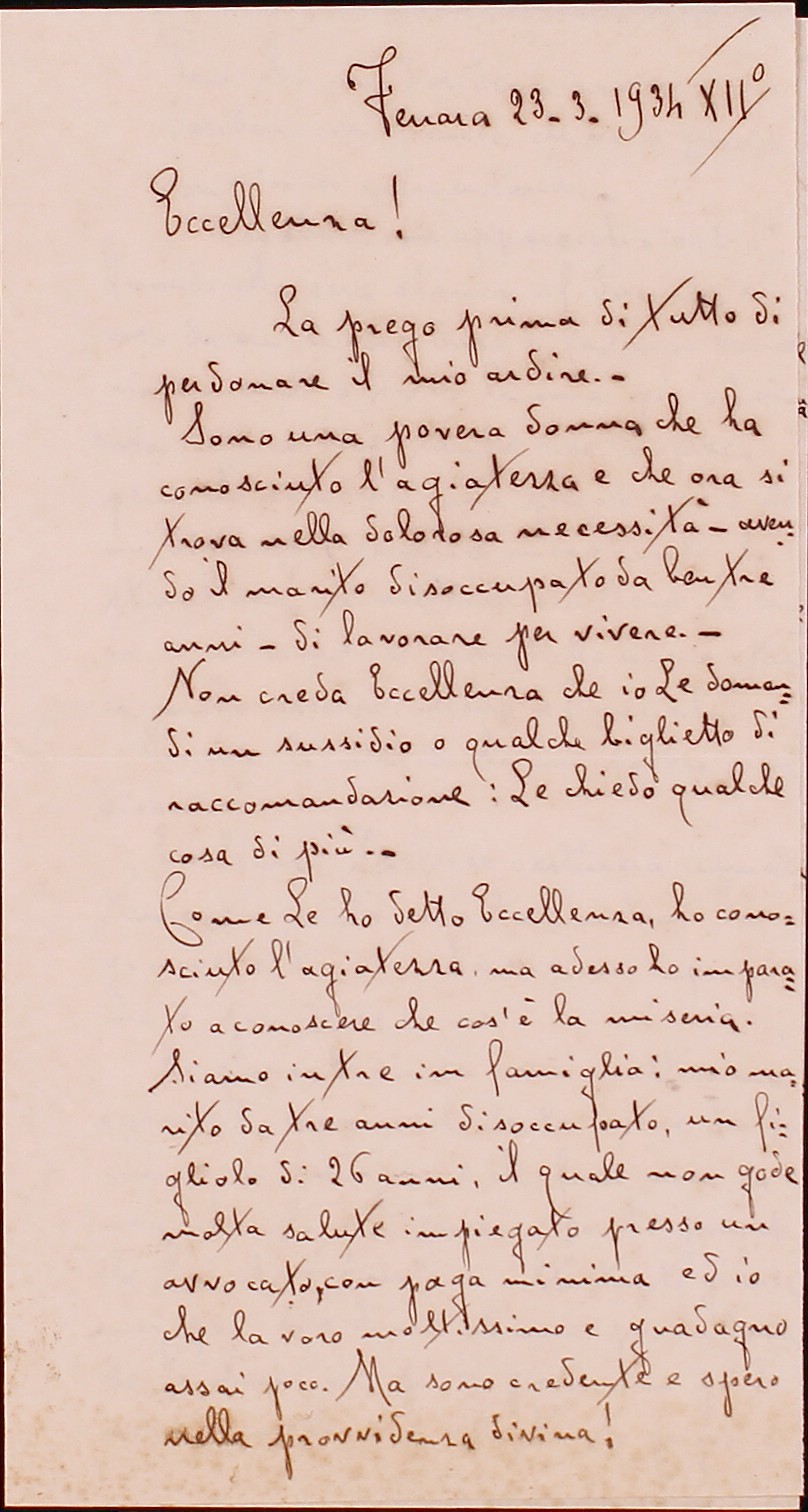 Ferrara 23-3-1934 XII°
Eccellenza!
La prego prima di tutto di
perdonare il mio ardire.-
Sono una povera donna che ha
conosciuto l'agiatezza e che ora si
trova nella dolorosa necessità - aven=
do il marito disoccupato da ben tre
anni - di lavorare per vivere.-
Non creda Eccellenza che io Le doman=
di un sussidio o qualche biglietto di
raccomandazione: Le chiedo qualche
cosa di più.-
Come Le ho detto Eccellenza, ho cono=
sciuto l'agiatezza, ma adesso ho impara=
to a conoscere che cos'è la miseria.
Siamo in tre in famiglia: mio ma=
rito da tre anni disoccupato, un fi=
gliolo di 26 anni, il quale non gode
molta salute impiegato presso un
avvocato, con paga minima ed io
che lavoro moltissimo e guadagno
assai poco. Ma sono credente e spero
nella provvidenza divina!